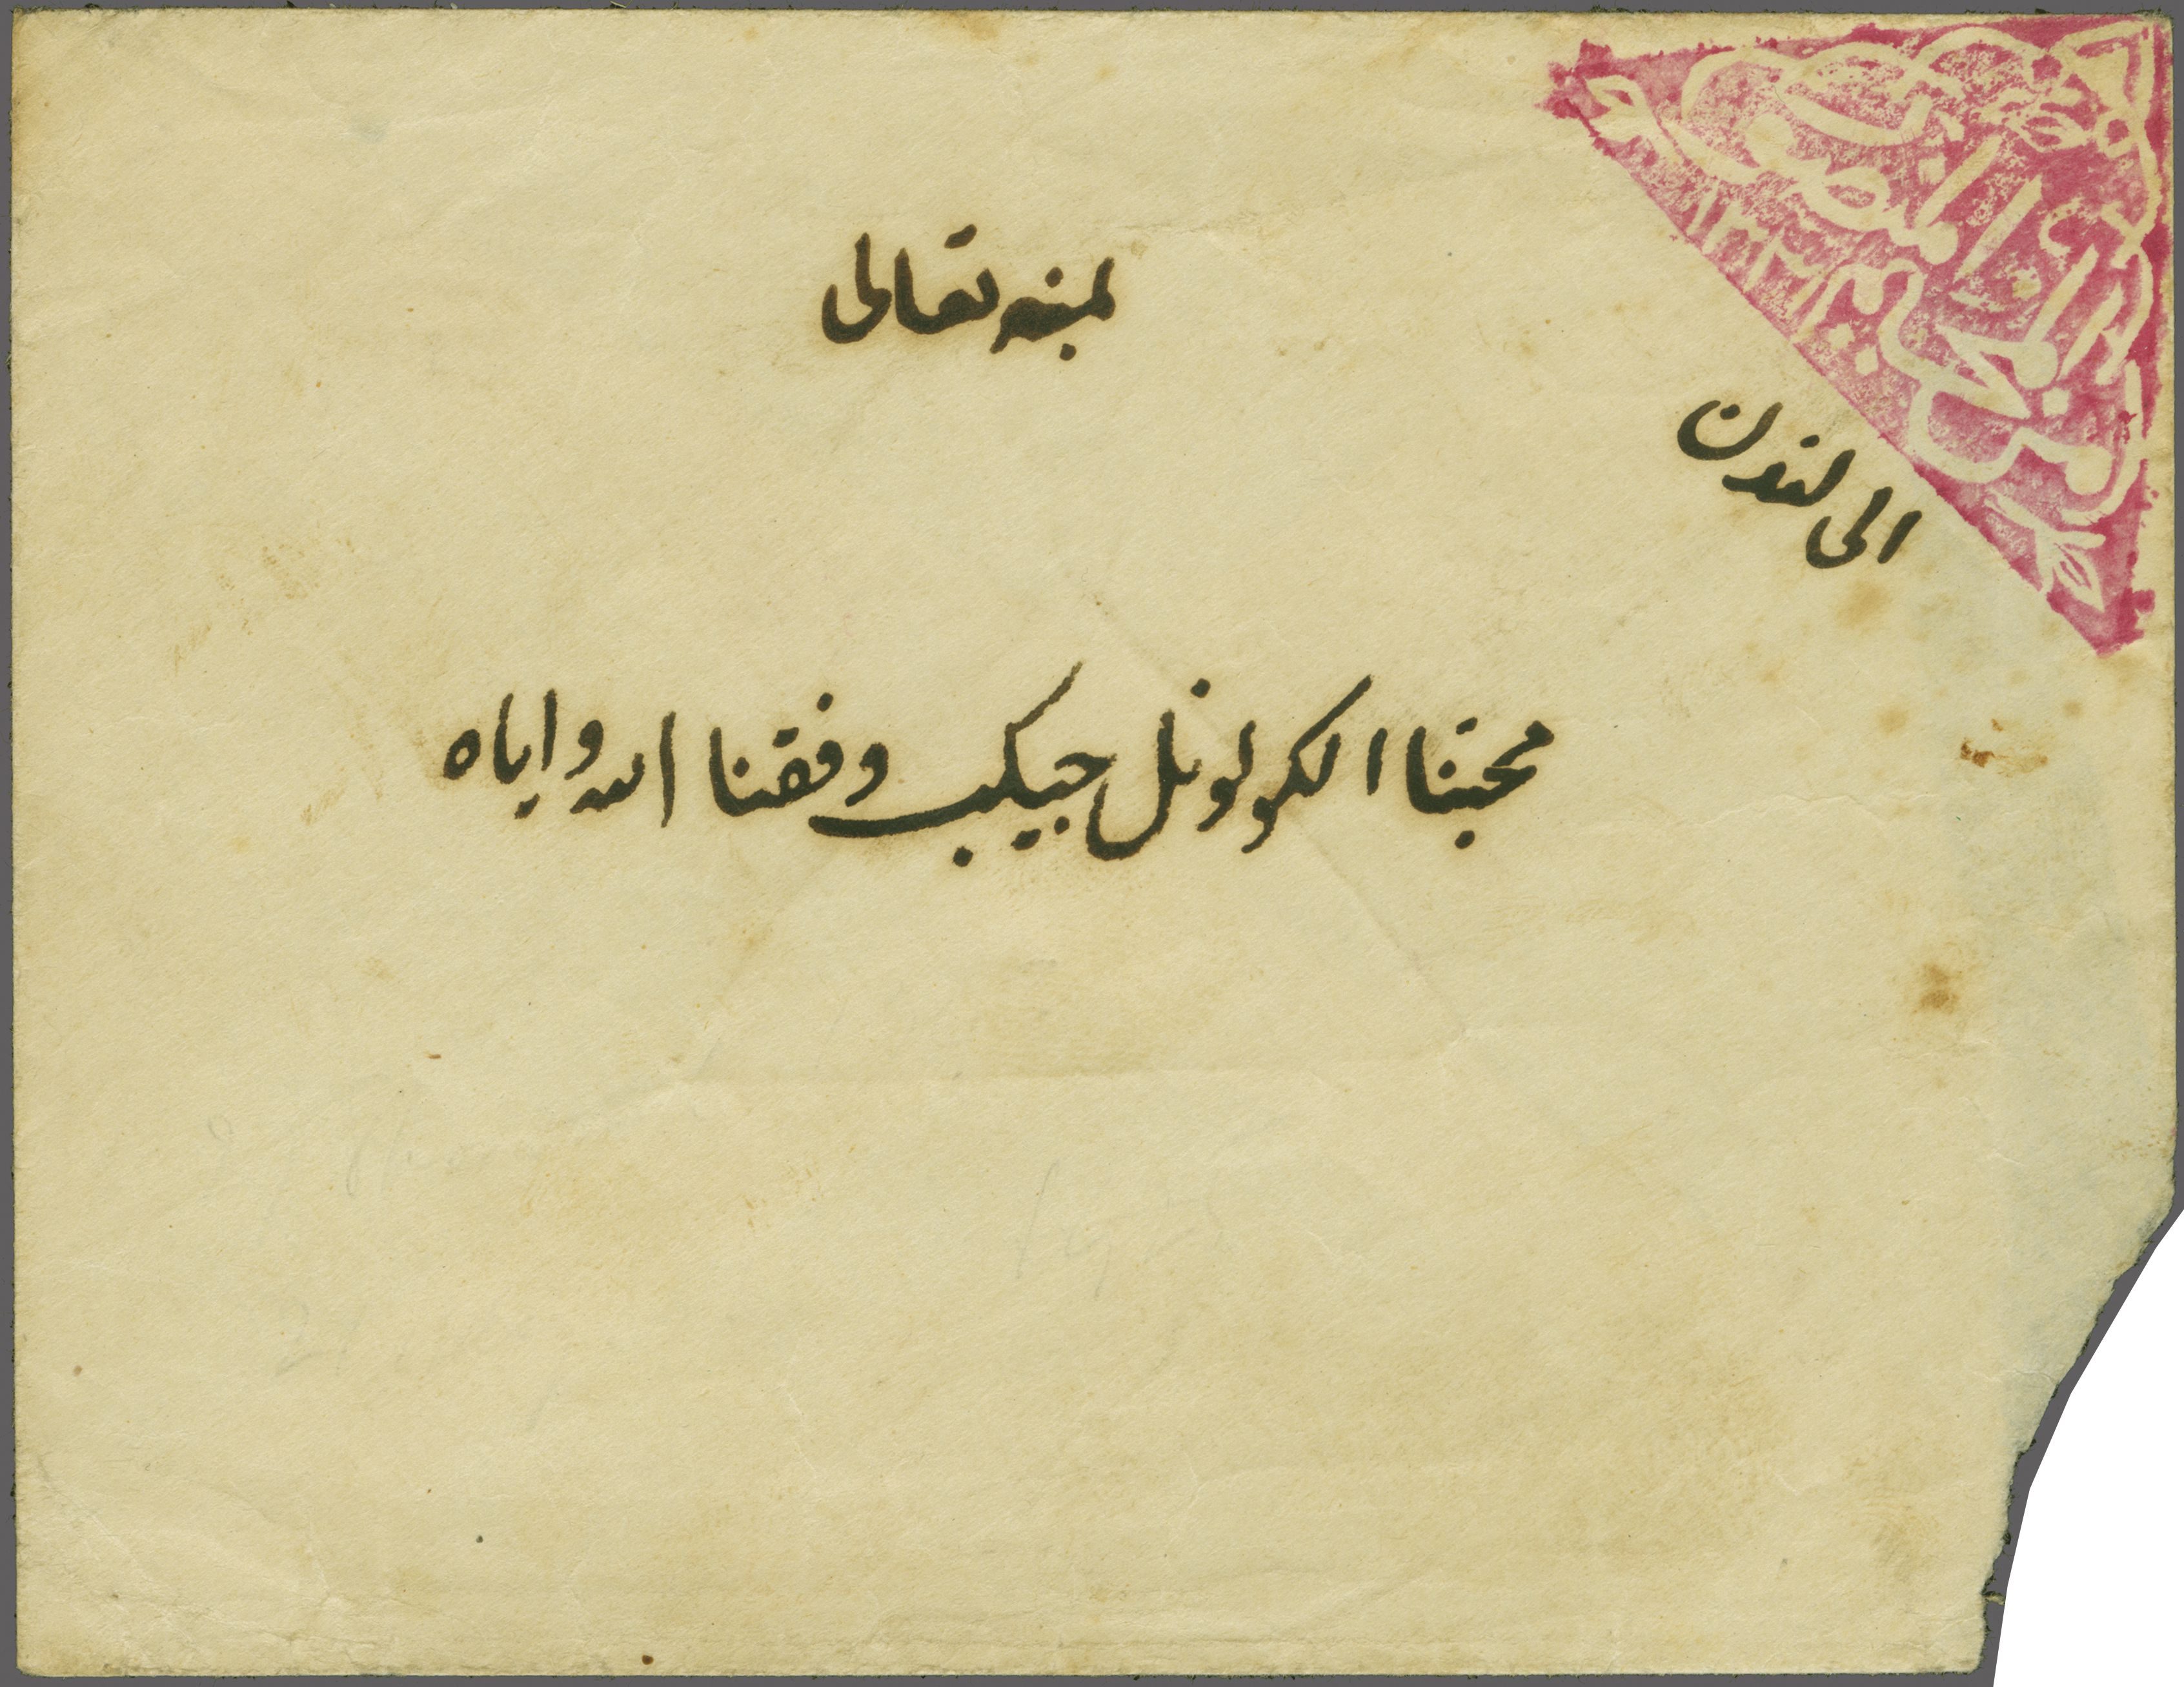 بمنه تعالى
الى لندن
محبنا الكولونل جيكب وفقنا الله واياه
١٣٢٢